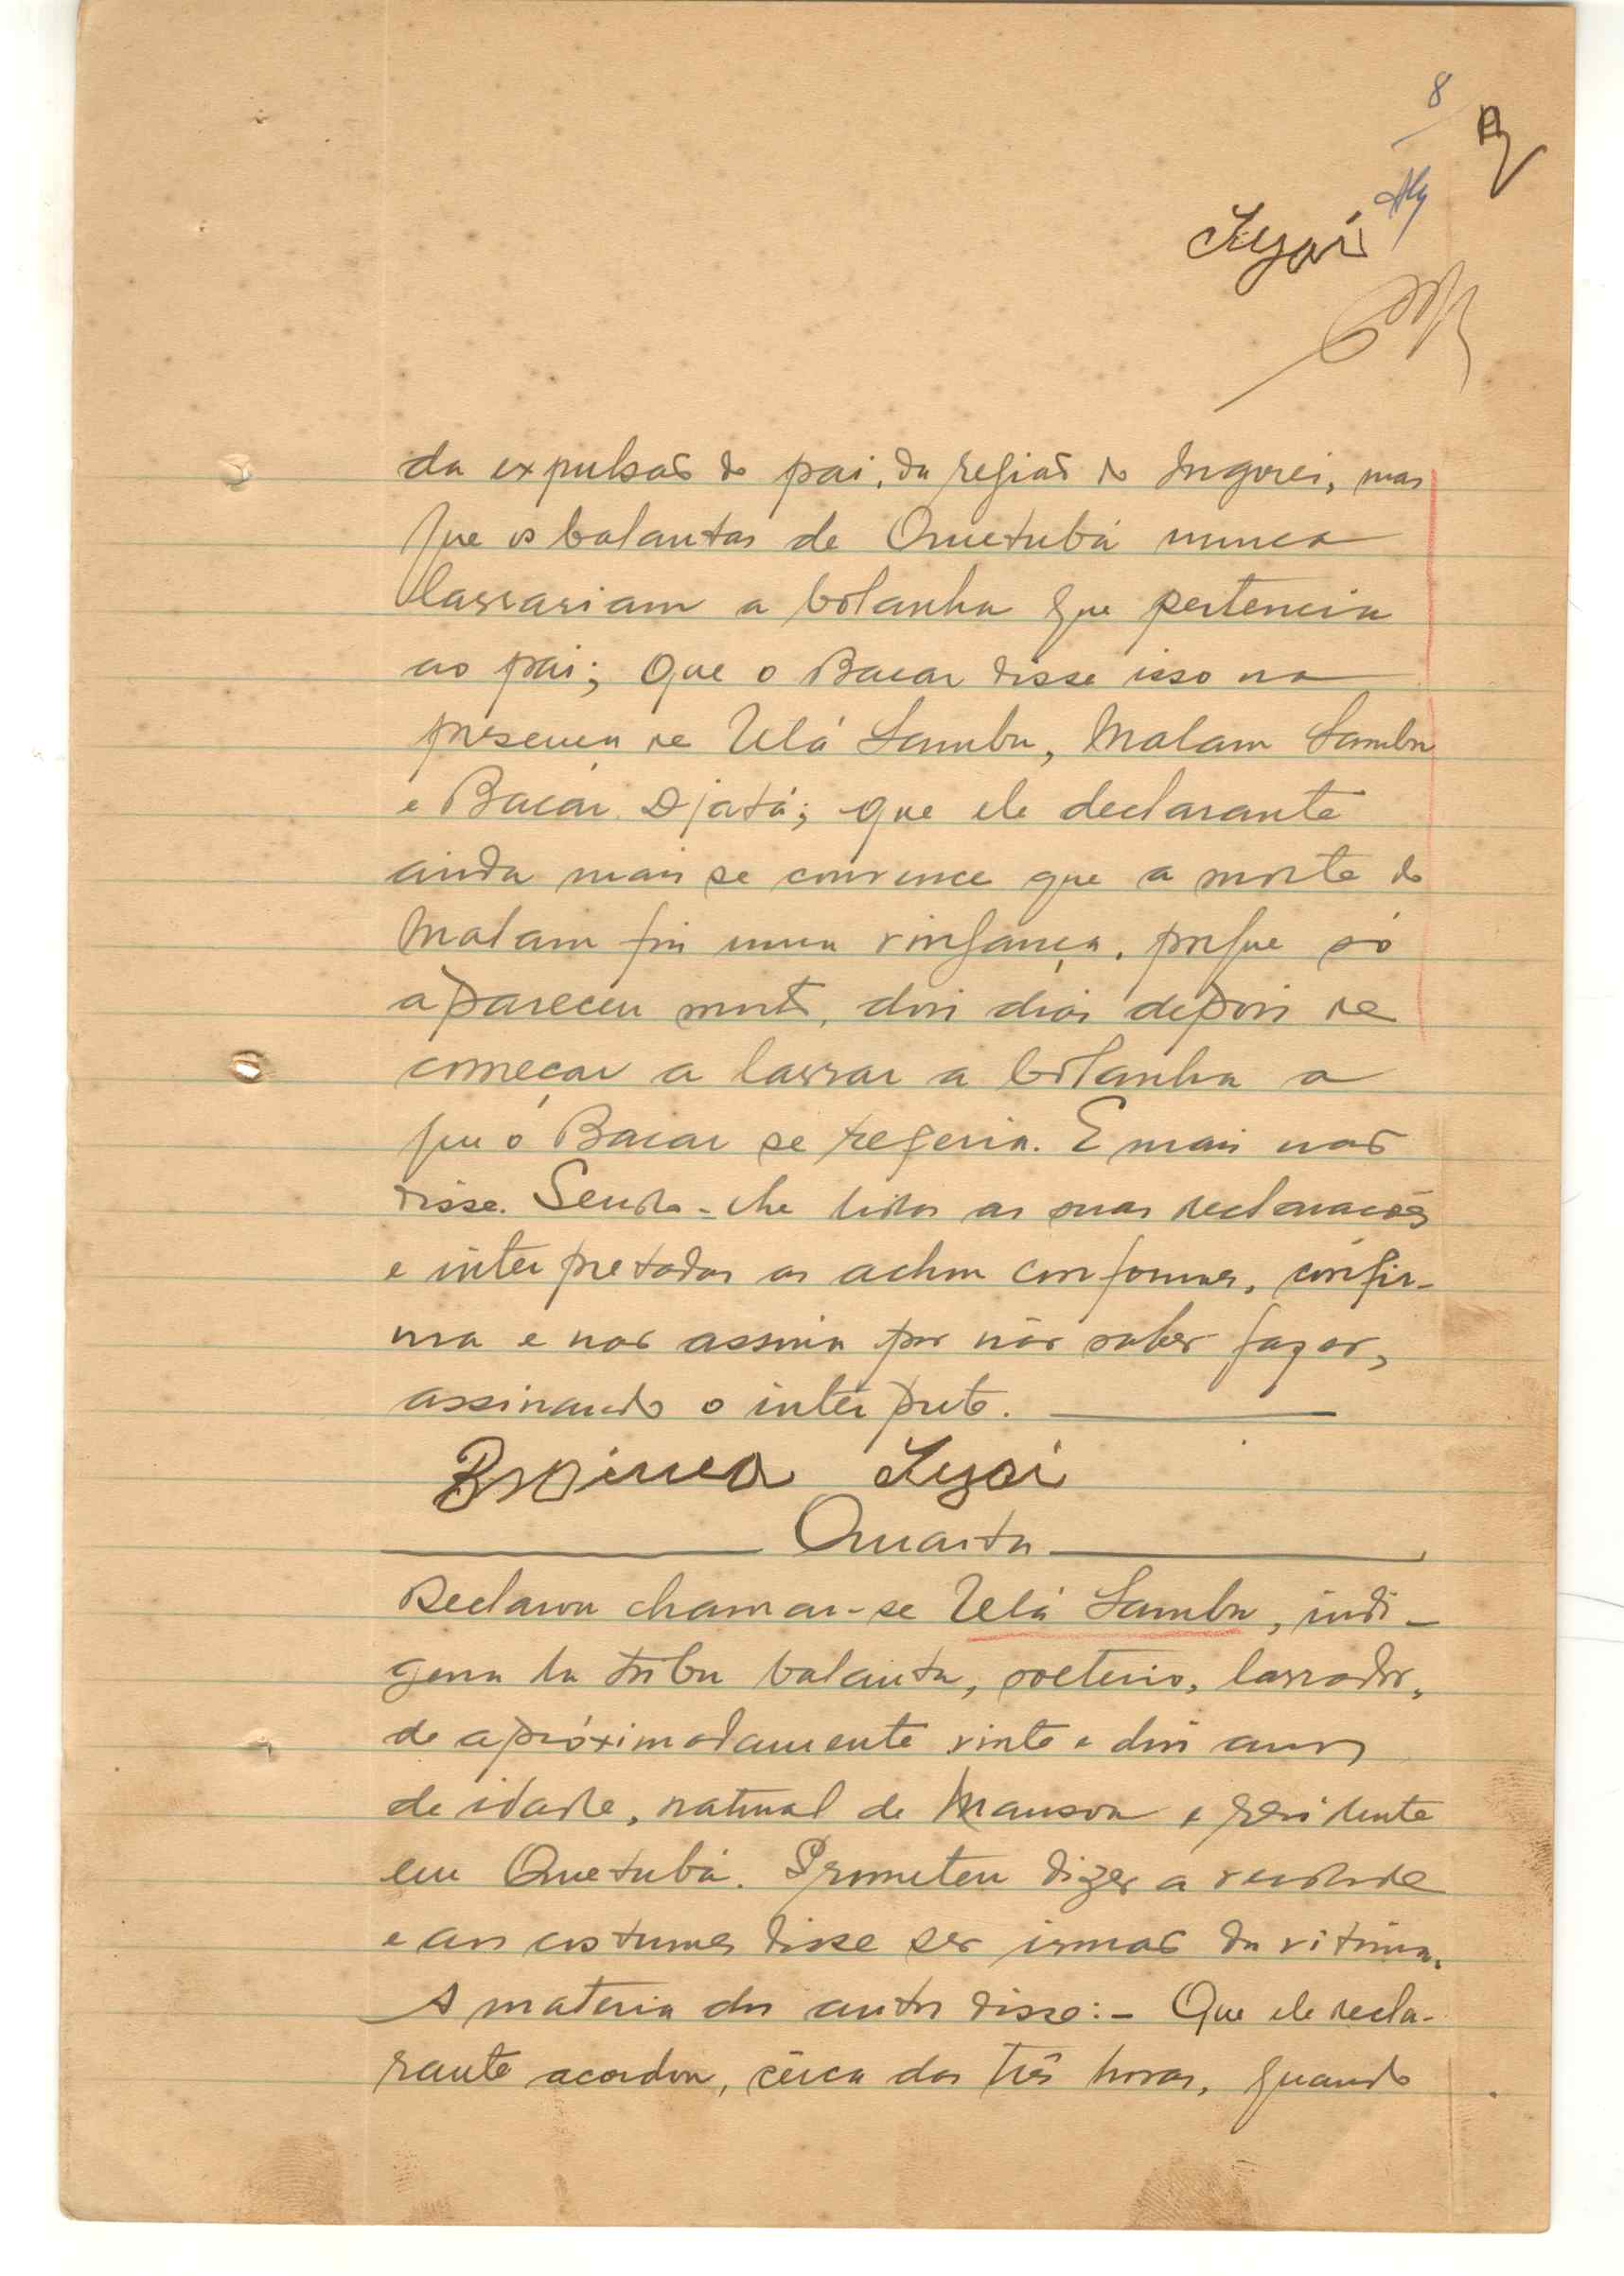 8
Injai
da expulsão do pai, da região de Ingorei, mas
que os balantas de Quetubá nunca
lavrariam a bolanha que pertencia
ao pai; Que o Bacar disse isso na
presença de Ulá Sambu, Malam Sambu
e Bacar Djatá; que ele declarante
ainda mais se convence que a morte do
Malam foi uma vingança, porque só
apareceu morto, dois dias depois de
começar a lavrar a bolanha a
que o Bacar se referia. E mais não
disse. Sendo-lhe lidas as suas declarações
e interpretadas as achou conformes, confir-
ma e não assina por não saber fazer,
assinando o intérprete.
Braima Injai
Quarta
Declarou chamar-se Ulá Sambu, indi-
gena da tribu balanta, solteiro, lavrador,
de apróximadamente vinte e dois anos
de idade, natural de Mansoa e residente
em Quetubá. Prometeu dizer a verdade
e aos costumes disse ser irmão da vitima.
A materia dos autos disse:- Que ele decla-
rante acordou, cêrca das três horas, quando